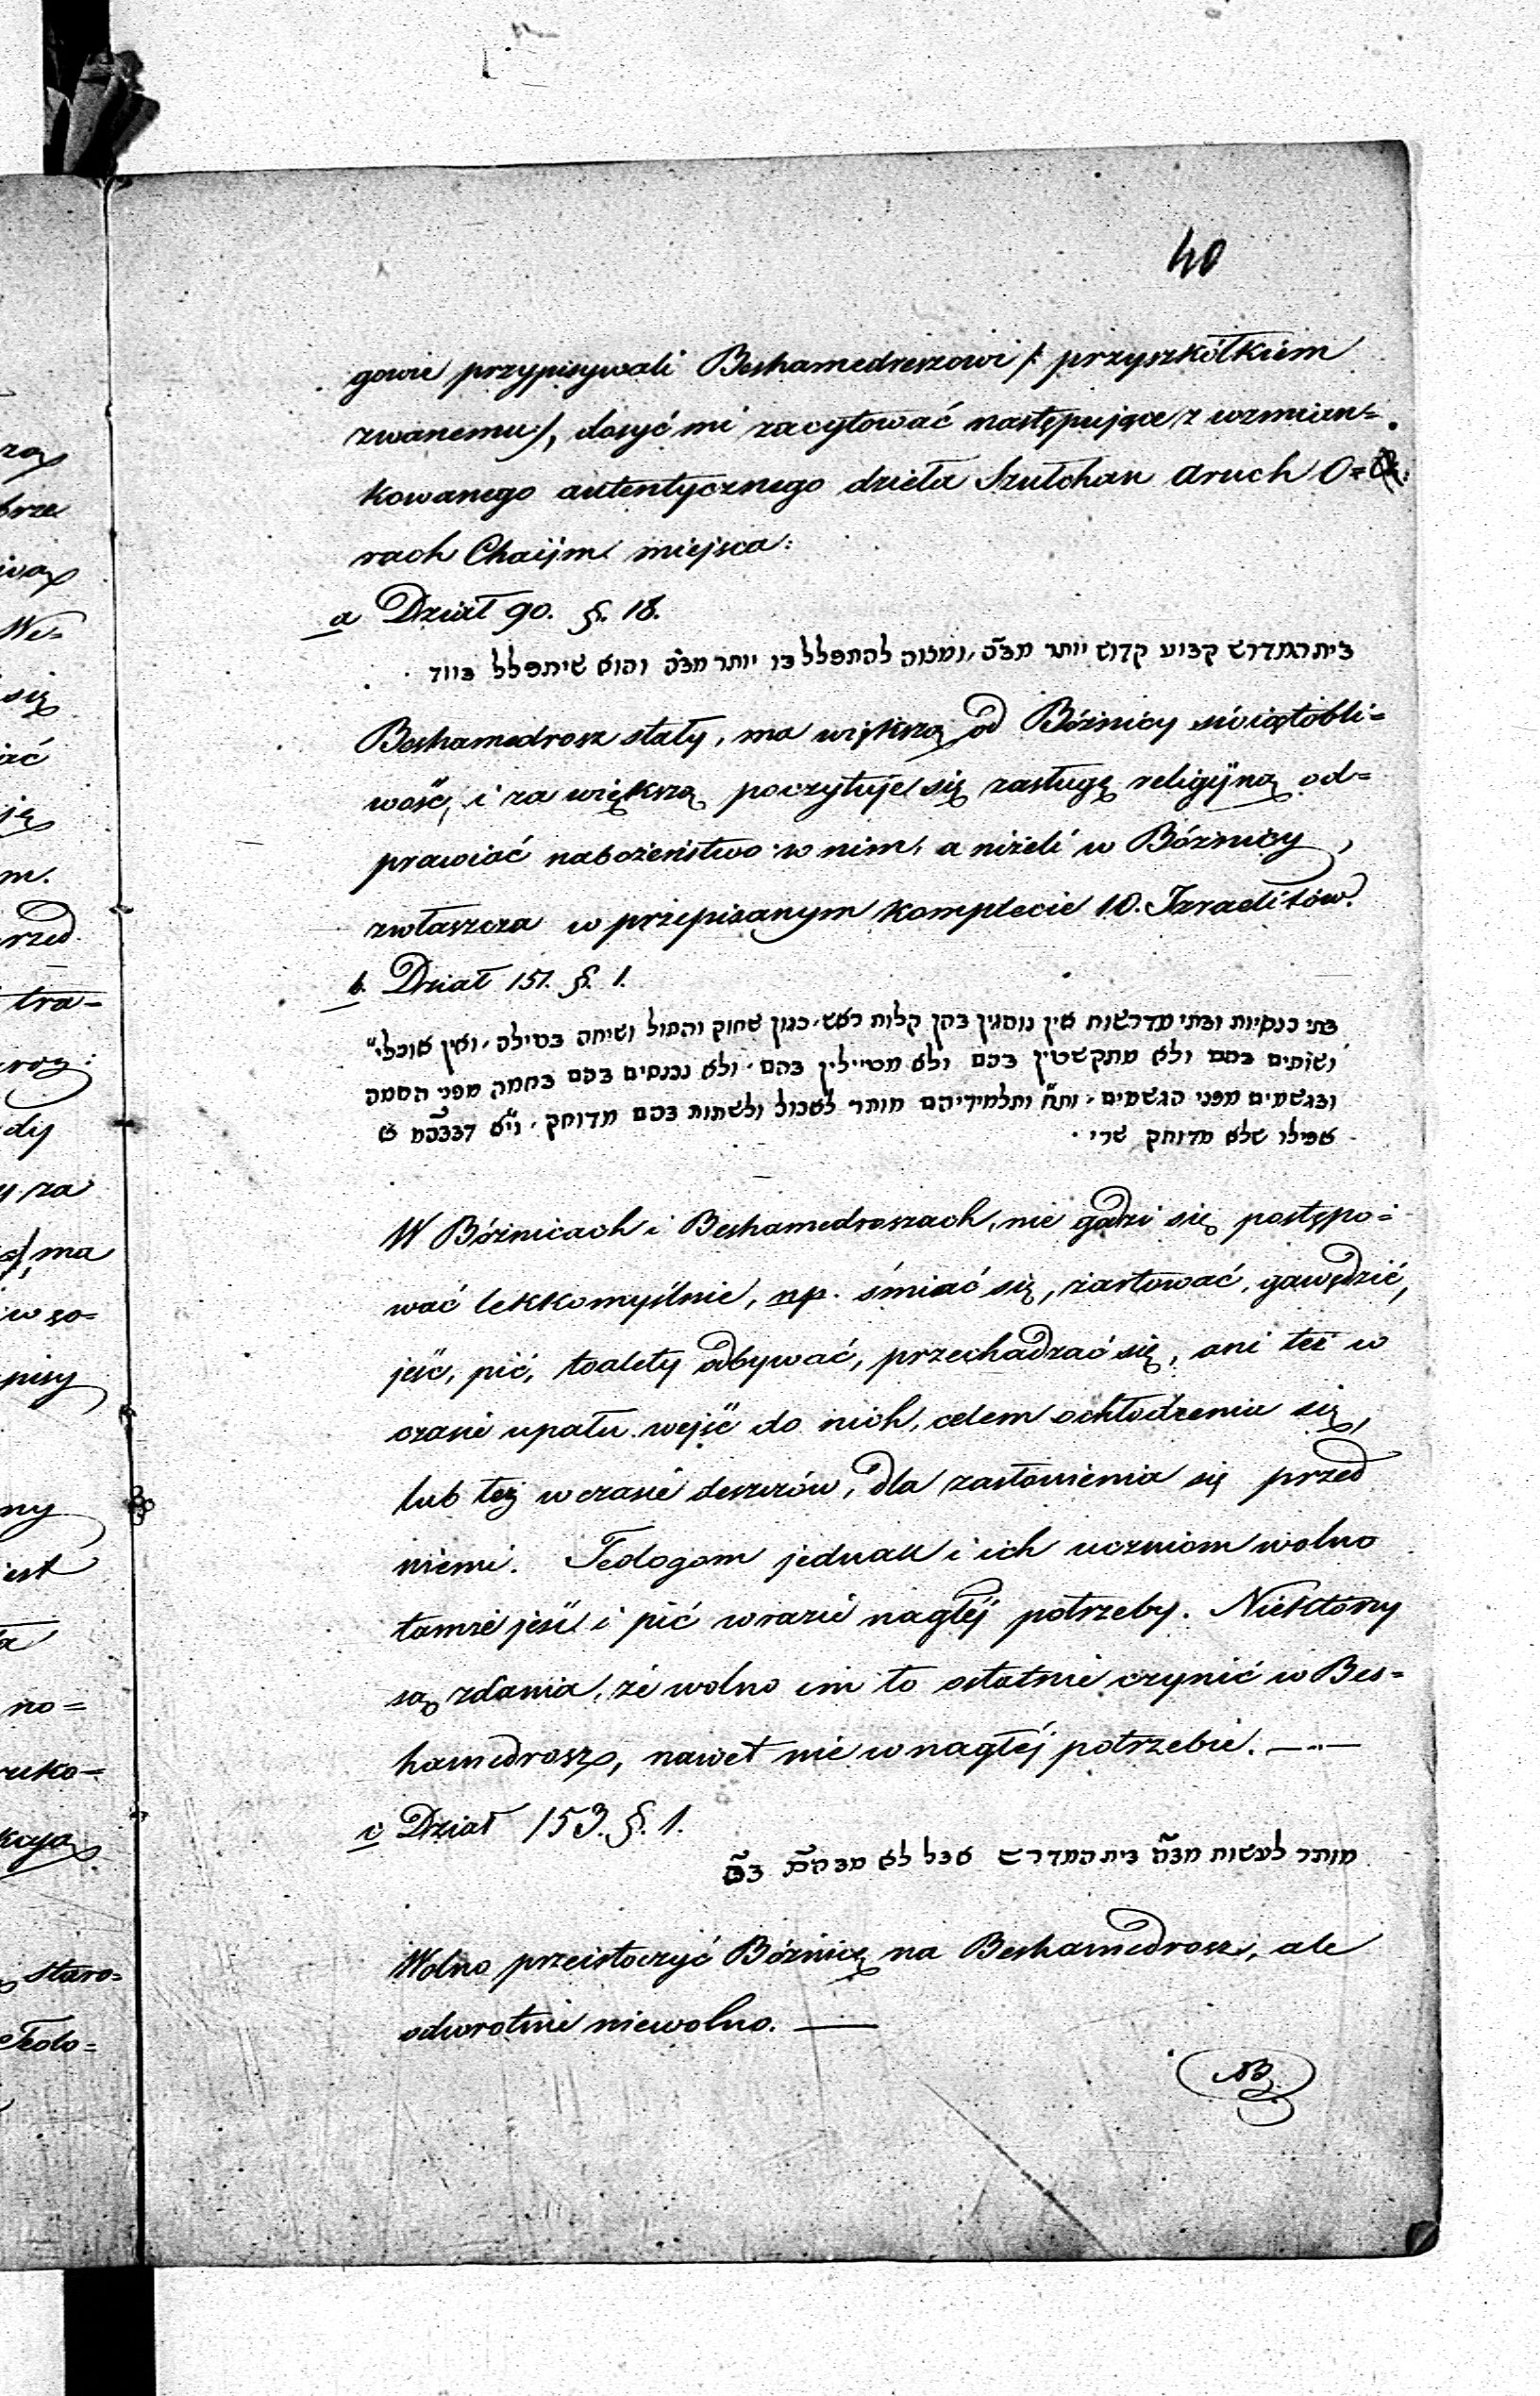 40
gowie przypisywali Beshamedreszowi /: przyszkółkiem
zwanemu:/, dosyć mi zacytować następujące z wzmian=
kowanego autentycznego dzieła Szulchan Aruch O=
rach Chaijm miejsca:
a Dział 90. §. 18.
בית המדרש קבוע קדוש יותר מבה״כ, ומצוה להתפלל בו יותר מבה״כ והוא שיתפלל ביוד
Beshamedrosz stały, ma większą od Bóżnicy świętobli=
wość, i za większą poczytuje się zasługę religijną od=
prawiać nabożeństwo w nim, a niżeli w Bóżnicy,
zwłaszcza w przepisanym komplecie 10. Izraelitów.
b. Dział 151. §. 1.
בתי כנסיות ובתי מדרשות אין נוהגין בהן קלות ראש, כגון שחוק והתול ושיחה בטילה, ואין אוכלי״
ושותים בהם ולא מתקשטין בהם ולא מטיילין בהם, ולא נכנסים בהם בחמה מפני החמה
ובגשמים מפני הגשמים, ות״ח ותלמידיהם מותר לאכול ולשתות בהם מדוחק, וי״א דבבה״מ א
אפילו שלא מדוחק שרי.
W Bóżnicach i Beshamedroszach, nie godzi się postępo=
wać lekkomyślnie, np. śmiać się, żartować, gawędzić,
jeść, pić, toalety odbywać, przechadzać się, ani też w
czasie upału wejść do nich, celem ochłodzenia się,
lub też w czasie deszczów, dla zasłonienia się przed
niemi. Teologom jednak i ich uczniom wolno
tamże jeść i pić w razie nagłéj potrzeby. Niektórzy
są zdania, że wolno im to ostatnie czynić w Bes=
hamedrosz, nawet nie w nagłéj potrzebie.
c Dział 153. §. 1.
מותר לעשות מבה״כ בית המדרש אבל לא מבהמ״ד בה״כ
Wolno przeistoczyć Bóżnicę na Beshamedrosz, ale
odwrotnie niewolno.